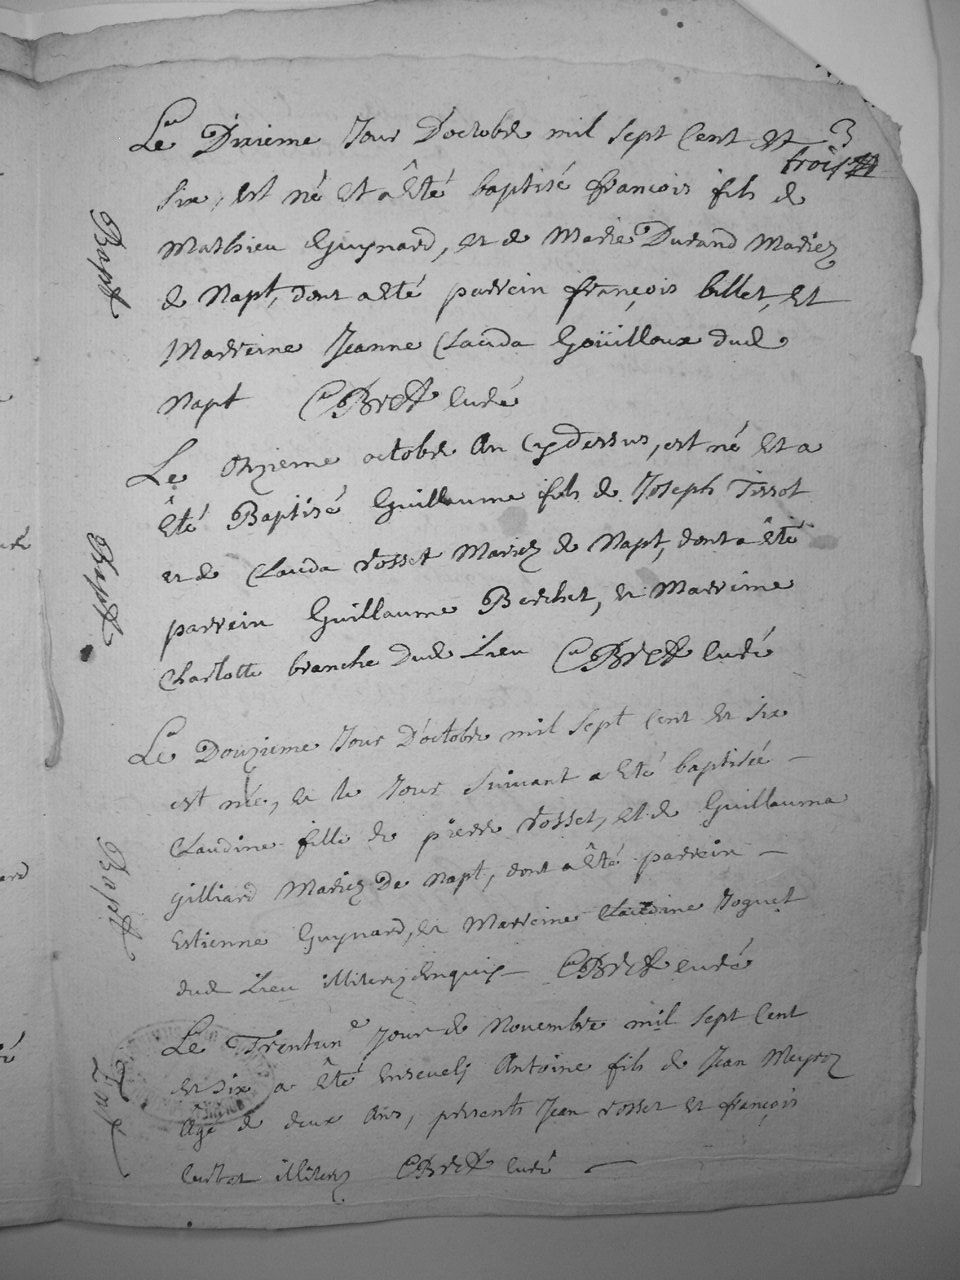 Le Dixieme Jour Doctobre mil sept Cent et
3
trois
Bapt
six, est né et a êté baptisé francois fils de
Mathieu Guynard, et de Marie Durand Mariez
de Napt, dont a êté parrein françois billet, et
Marreine Jeanne Clauda Goüilloux dud
Napt CBrett Curé
Bapt
Le Onzieme octobre An Cydessus, est né et a
êté Baptisé Guillaume fils de Joseph Tissot
et de Clauda rosset Mariez de Napt, dont a êté
parrein Guillaume Berchet, et Marreine
Charlotte branche dud Lieu CBrett Curé
Bapt
Le Douzieme Jour D'octobre mil sept Cent et six
est née, et le Jour suivant a êté baptisée
Claudine fille de pierre rosset, et de Guillauma
Gilliard Mariez De Napt, dont a êté parrein
Estienne Guynard, et Marreine Claudine Joguet
dud Lieu illiterez enquis CBrett Curé
Le Trentune Jour de Novembre mil sept Cent
et six a êté Enseveli Antoine fils de Jean
âgé de deux Ans, présents Jean rosset et françois
illiterez CBrett Curé